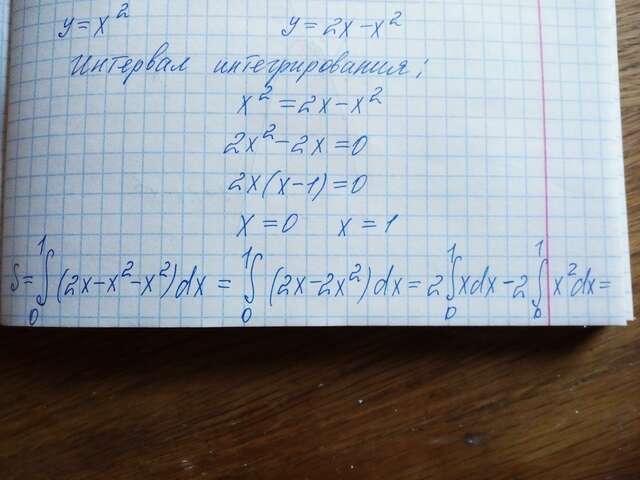 y=x² y=2x-x²
Интервал интегрирования;
x²=2x-x²
2x²-2x=0
2x(x-1)=0
x=0 x=1
S=∫₀¹(2x-x²-x²)dx=∫₀¹(2x-2x²)dx=2∫₀¹xdx-2∫₀¹x²dx=